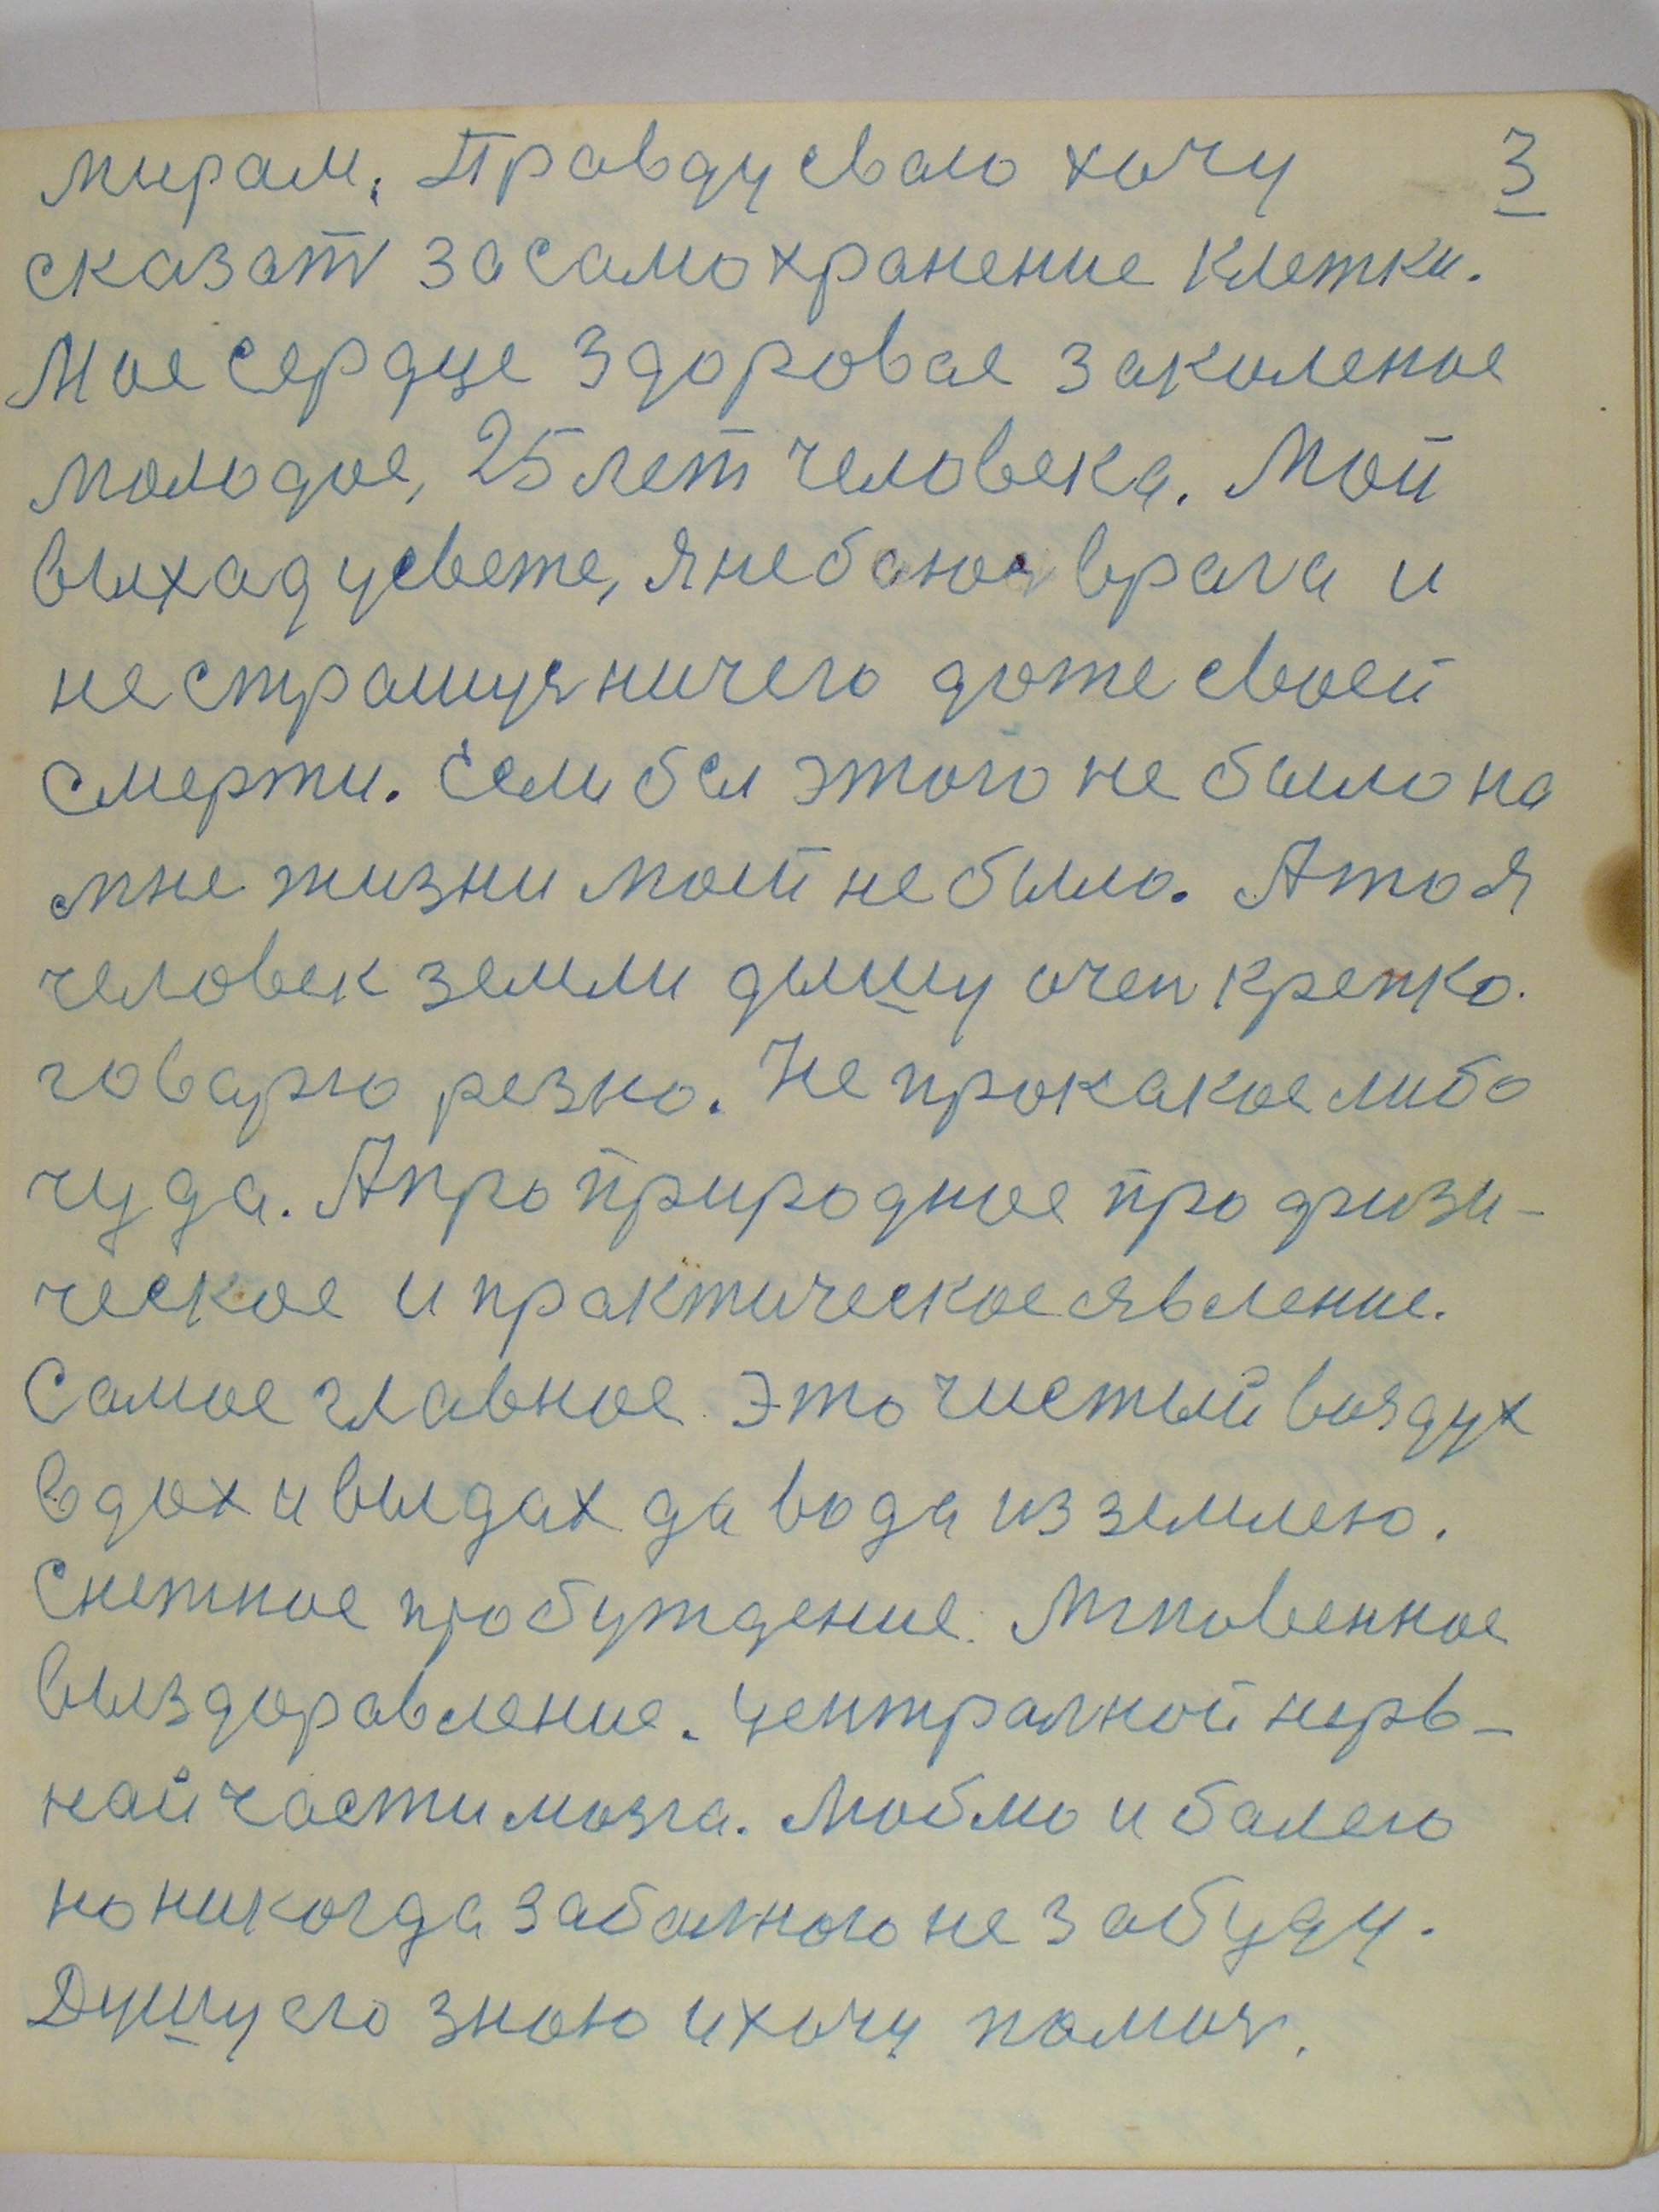 мирам. Правду сваю хочу 3
сказат засамохранение клетки.
Мое сердце здоровае закиленое
молодое, 25 лет человека. Мой
выхад усвете, я небоюся врага и
нестрашуся ничего даже своей
смерти. Если бы этого не было на
мне жизни моей не было. А то я
человек земли дышу очен крепко.
говарю резко. Не прокакоелибо
чуда. Апро природное про физи-
ческое и практическое явление.
Самое главное это чистый воздух
вдох и выдах да вода из землею.
Снежное пробуждение. Мгновенное
выздоравление. централной нерв-
най части мозга. Люблю и балею
но никогда забалного не забуду.
Душу его знаю и хочу помоч.